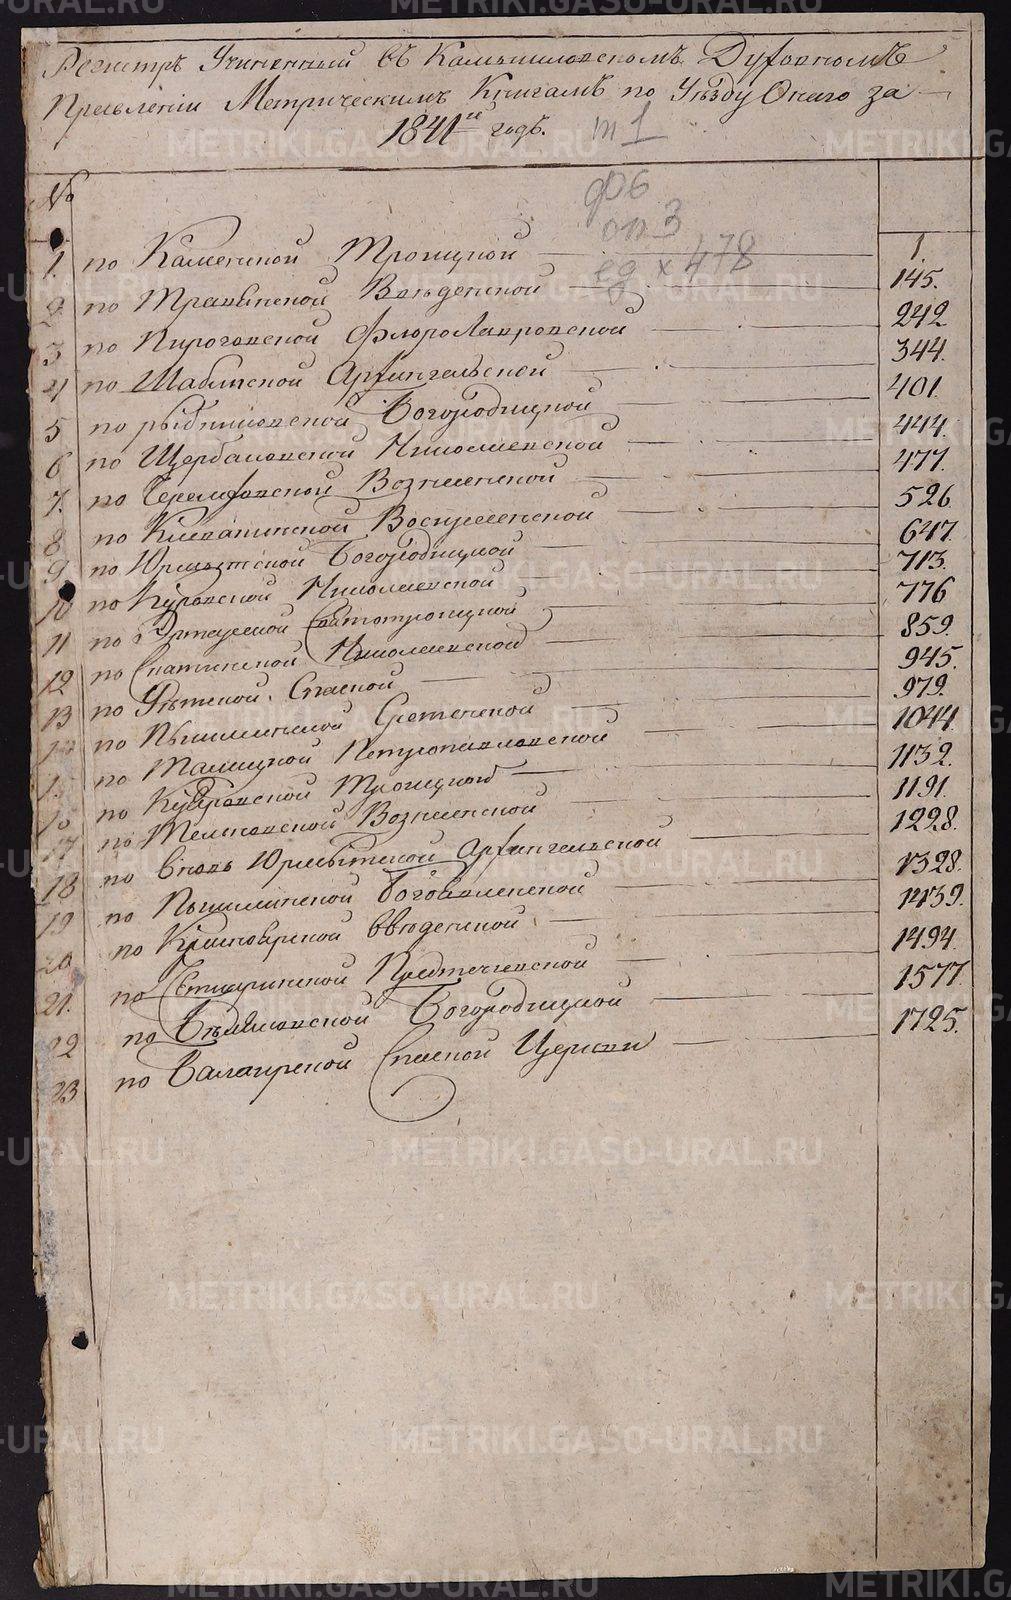 Регистръ Учиненный въ Камышловскомъ Духовномъ
Правленіи Метрическимъ Книгамъ по Уѣзду Онаго за
1841й годъ. т 1
№
ф 6
оп 3
ед х 478
1. по Каменской Троицкой 1.
2. по Травянской Введенской 145.
3 по Пироговской Флоролавровской 242
4 по Шаблиской Архангельской 344.
5 по Рыбниковской Богородицкой 401.
6 по Щербаковской Николаевской 444.
7. по Черемховской Вознесенской 477.
8 по Клевакинской Воскресенской 526
9 по Юрмытской Богородицкой 647.
10 по Куровской Николаевской 713.
11 по Святотроицкой 776
12 по Скатинской Николаевской 859.
13 по Уѣтской Спаской 945.
14 по Пышминской Сретенской 979.
15 по Талицкой Петропавловской 1044.
16 по Куяровской Троицкой 1132.
17 по Темновской Вознесенской 1191.
18 по вновь Юрмытской Архангельской 1228.
19 по Пышминской Богоявленской 1328.
20 по Красноярской Введенской 1439.
21. по Четкаринской Предтечевской 1494.
22 по Бѣляковской Богородицкой 1577.
23 по Балаирской Спаской Церкви 1725.
METRIKI.GASO-URAL.RU